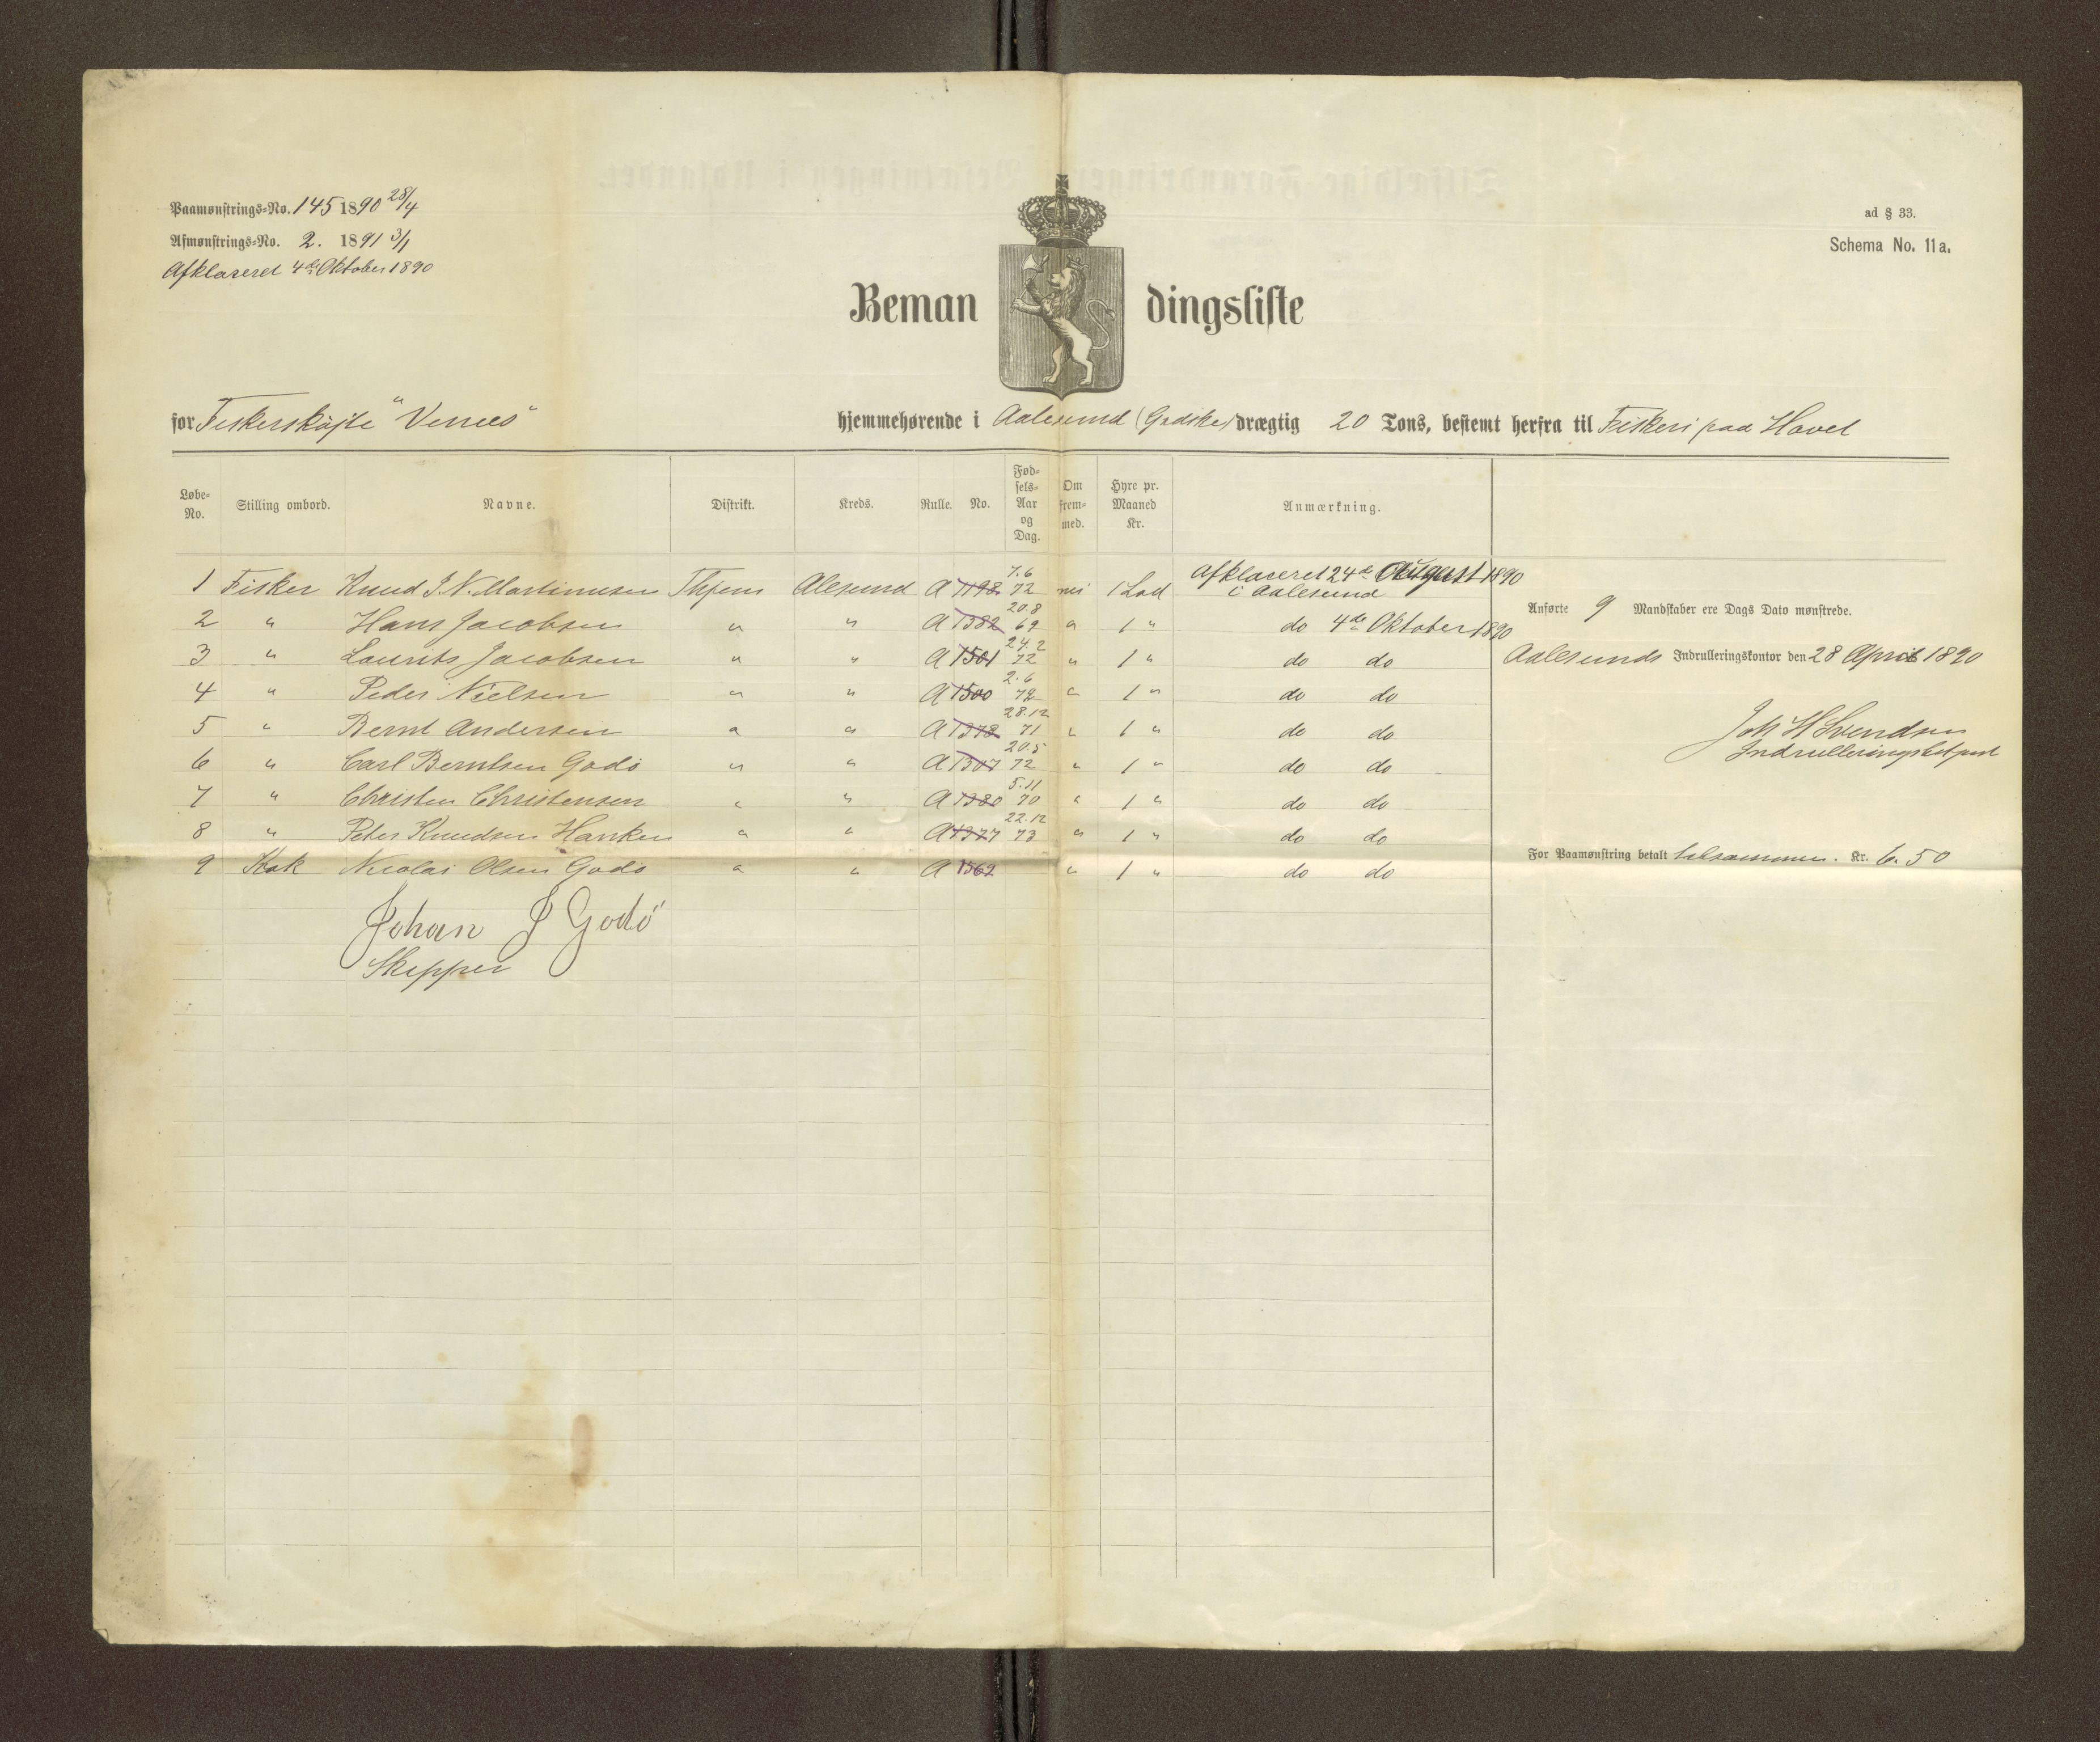 Paamønstrings-No. 145 1890 28/4
Afmønstrings-No. 2. 1891 3/1
Afklareret 4de Oktober 1890
ad § 33.
Schema No. 11 a.
Bemandingsliste
for Fiskerskøjte "Venus" hjemmehørende i Aalesund (Godske) drægtig 20 Tons, bestemt herfra til Fiskeri paa Havet
Løbe-No. Stilling ombord. Navne. Distrikt. Kreds. Rulle. No. Fødsels-Aar og Dag. Om frem-med. Hyre pr. Maaned Kr. Anmærkning.
1 Fisker Knud J. N. Martinusen Thjem Alesund A 1198 7.6 72 nei 1 Lod Afklareret 24de August 1890 i Aalesund
2 " Hans Jacobsen " " A 1382 20.8 69 " 1 " do 4de Oktober 1890
3 " Laurits Jacobsen " " A 1501 24.2 72 " 1 " do do
4 " Peder Nielsen " " A 1500 2.6 72 " 1 " do do
5 " Bernt Andersen " " A 1378 28.12 71 " 1 " do do
6 " Carl Berntsen Godø " " A 1307 20.5 72 " 1 " do do
7 " Christen Christensen " " A 1380 5.11 70 " 1 " do do
8 " Peter Knudsen Hanken " " A 1377 22.12 73 " 1 " do do
9 Kok Nicolai Olsen Godø " " A 1562 " 1 " do do
Johan J Godö
Skipper
Anførte 9 Mandskaber ere Dags Dato mønstrede.
Aalesunds Indrulleringskontor den 28 April 1890
Joh H Svendsen
For Paamønstring betalt tilsammen. Kr. 6.50